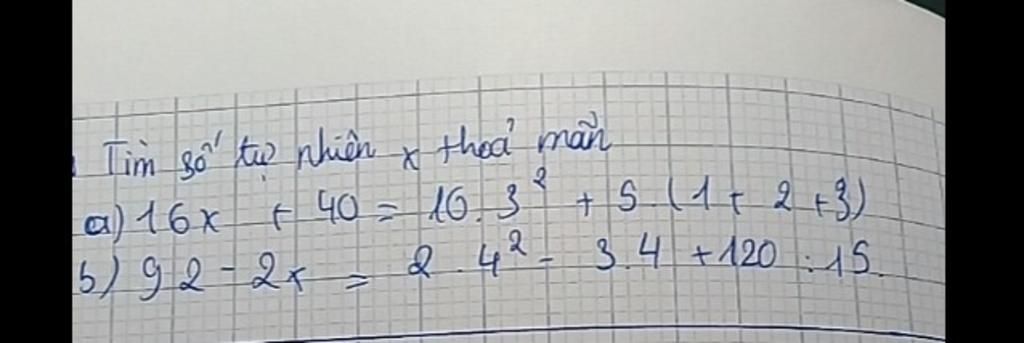 Tìm số tự nhiên x thoả mãn
a) 16x + 40 = 10.3² + 5.(1 + 2 + 3)
b) 92 - 2x = 2.4² - 3.4 + 120 : 15.